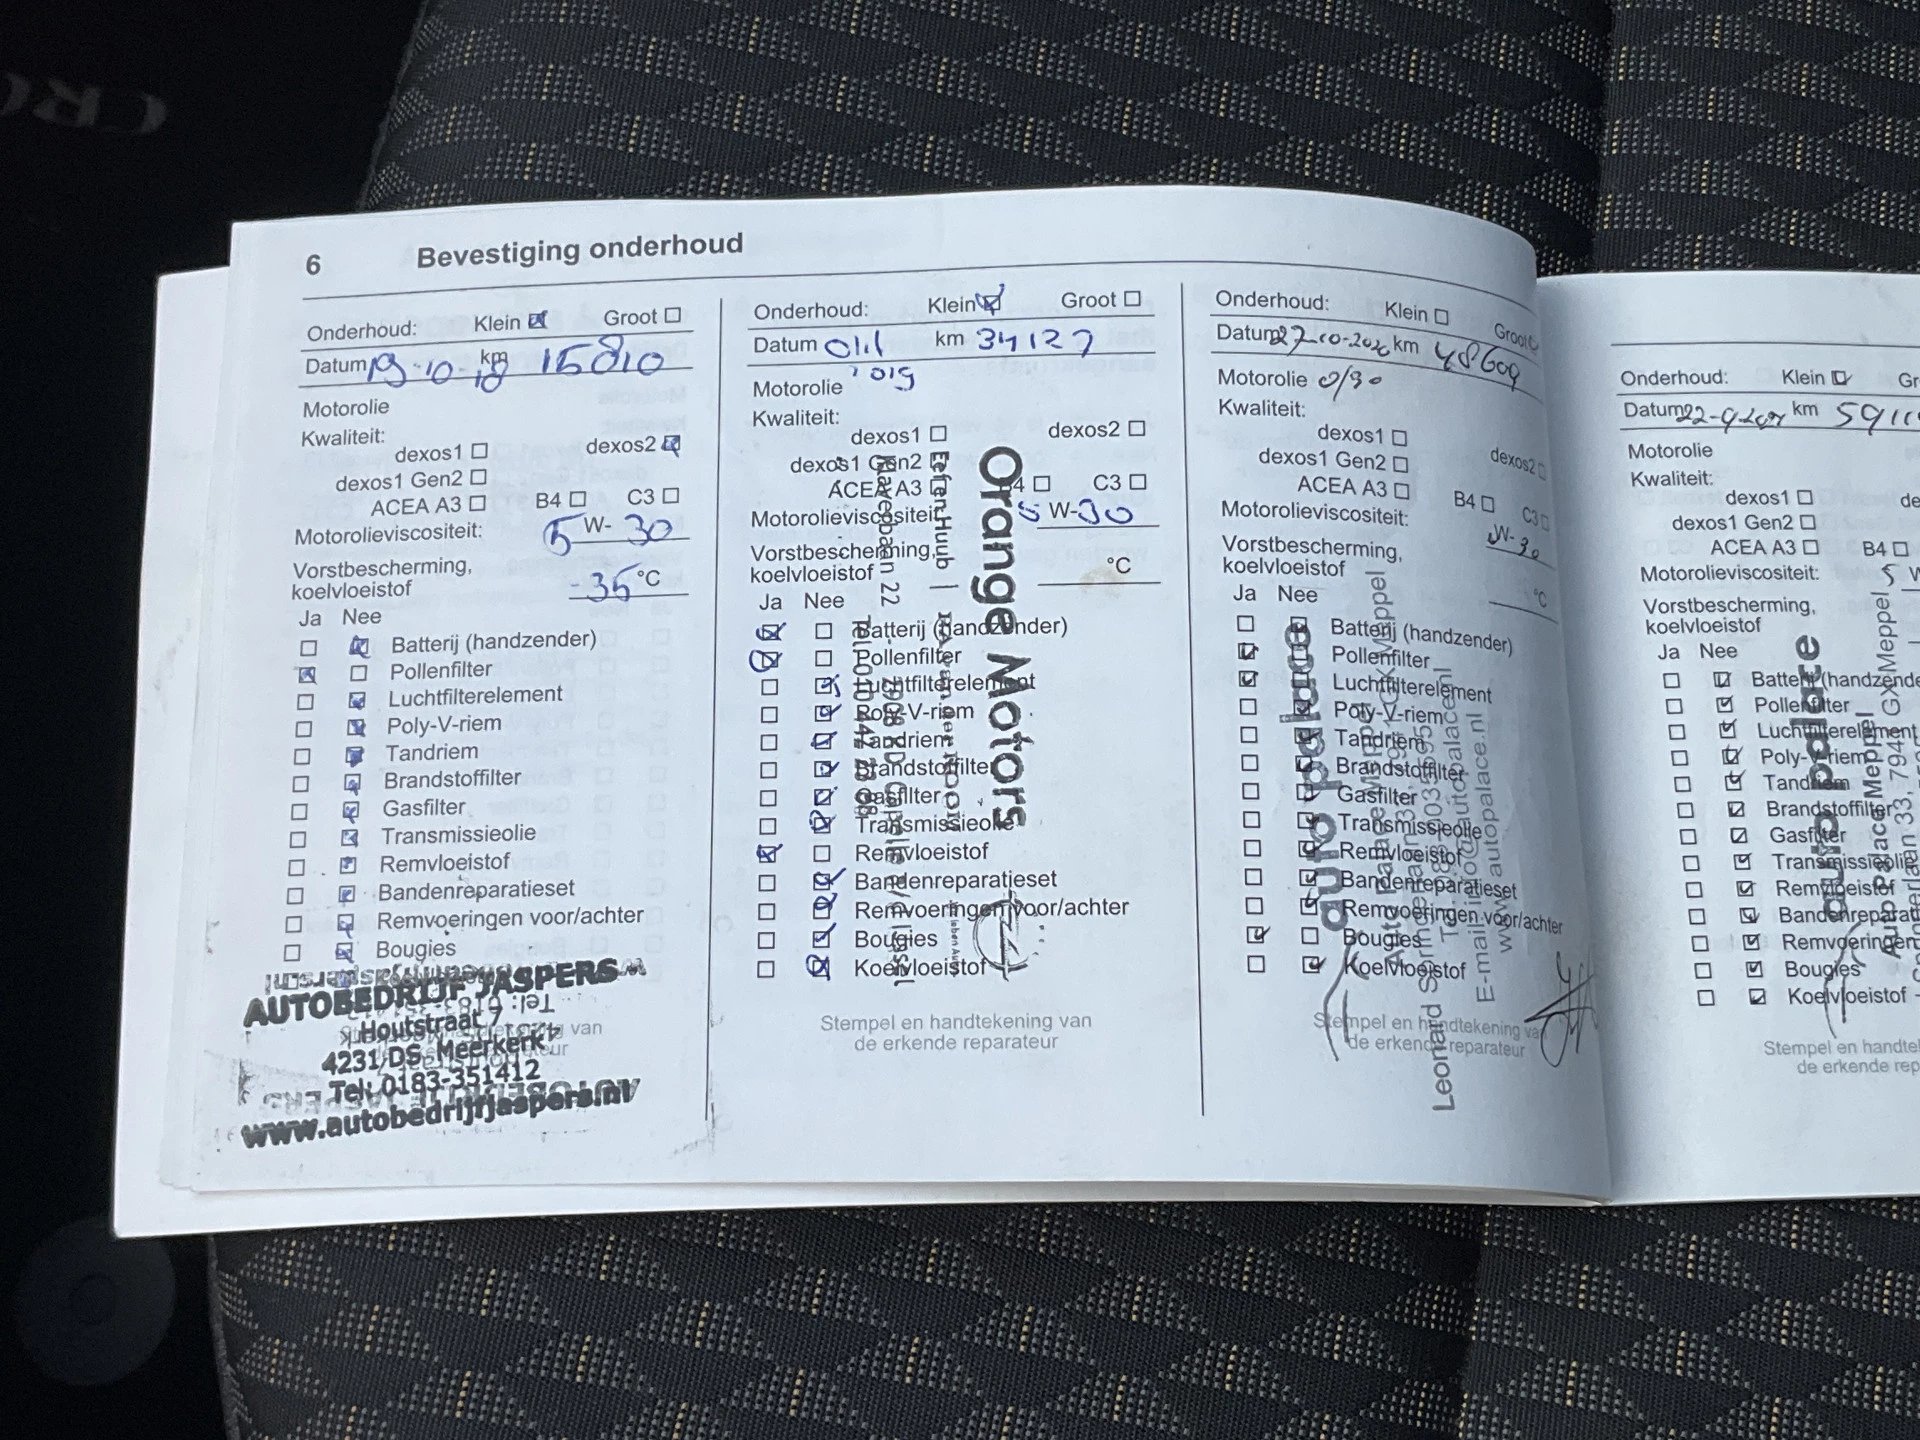 6 Bevestiging onderhoud
Onderhoud: Klein Groot
Datum 19-10-18 km 15810
Motorolie
Kwaliteit:
dexos1 dexos2
dexos1 Gen2
ACEA A3 B4 C3
Motorolieviscositeit: 5 W- 30
Vorstbescherming,
koelvloeistof -35 °C
Ja Nee
Batterij (handzender)
Pollenfilter
Luchtfilterelement
Poly-V-riem
Tandriem
Brandstoffilter
Gasfilter
Transmissieolie
Remvloeistof
Bandenreparatieset
Remvoeringen voor/achter
Bougies
AUTOBEDRIJF JASPERS
Houtstraat 7
4231 DS Meerkerk
Tel: 0183-351412
www.autobedrijfjaspers.nl
Onderhoud: Klein Groot
Datum km 34127
Motorolie
Kwaliteit:
dexos1 dexos2
dexos1 Gen2
ACEA A3 B4 C3
Motorolieviscositeit: 5 W-30
Vorstbescherming,
koelvloeistof °C
Ja Nee
Batterij (handzender)
Pollenfilter
Luchtfilterelement
Poly-V-riem
Tandriem
Brandstoffilter
Gasfilter
Transmissieolie
Remvloeistof
Bandenreparatieset
Remvoeringen voor/achter
Bougies
Koelvloeistof
Orange Motors
Klaverbaan 22
Stempel en handtekening van
de erkende reparateur
Onderhoud: Klein Groot
Datum 27-10-2020 km 48609
Motorolie 0/30
Kwaliteit:
dexos1 dexos2
dexos1 Gen2
ACEA A3 B4 C3
Motorolieviscositeit: W-30
Vorstbescherming,
koelvloeistof °C
Ja Nee
Batterij (handzender)
Pollenfilter
Luchtfilterelement
Poly-V-riem
Tandriem
Brandstoffilter
Gasfilter
Transmissieolie
Remvloeistof
Bandenreparatieset
Remvoeringen voor/achter
Bougies
Koelvloeistof
auto palace
Auto Palace Meppel
Stempel en handtekening van
de erkende reparateur
Onderhoud: Klein
Datum km
Motorolie
Kwaliteit:
dexos1
dexos1 Gen2
ACEA A3 B4
Motorolieviscositeit: 5
Vorstbescherming,
koelvloeistof
Ja Nee
Pollenfilter
Luchtfilterelement
Poly-V-riem
Tandriem
Brandstoffilter
Gasfilter
Transmissieolie
Remvloeistof
Bougies
Koelvloeistof
auto palace
Auto Palace Meppel
Stempel en
de erkende